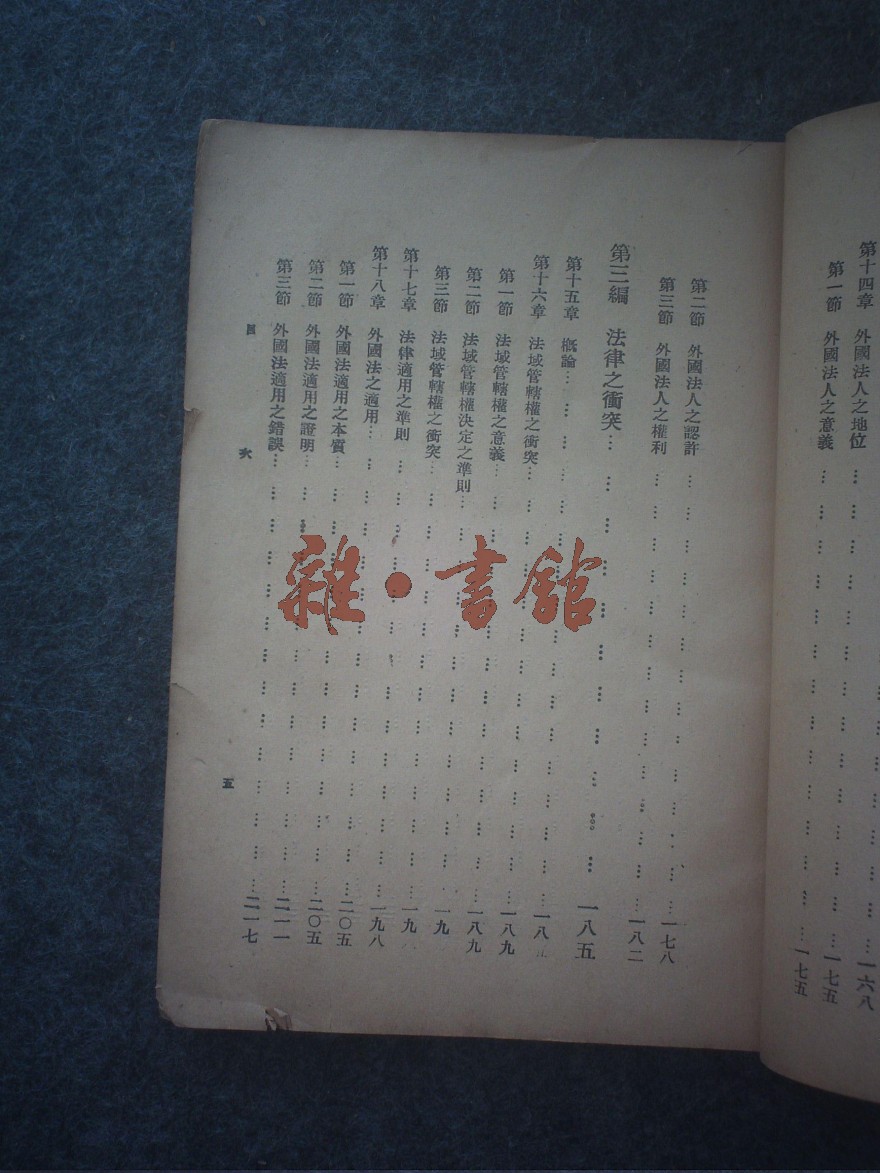 一六八
第十四章 外國法人之地位…一七五
第一節 外國法人之意義…一七五
第二節 外國法人之認許…一七八
第三節 外國法人之權利…一八二
第三編 法律之衝突…一八五
第十五章 概論…一八
第十六章 法域管轄權之衝突…一八九
第一節 法域管轄權之意義…一八九
第二節 法域管轄權決定之準則…一九
第三節 法域管轄權之衝突…一九
第十七章 法律適用之準則…一九八
第十八章 外國法之適用…二〇五
第一節 外國法適用之本質…二〇五
第二節 外國法適用之證明…二一一
第三節 外國法適用之錯誤…二一七
目 次 五
雜·書館